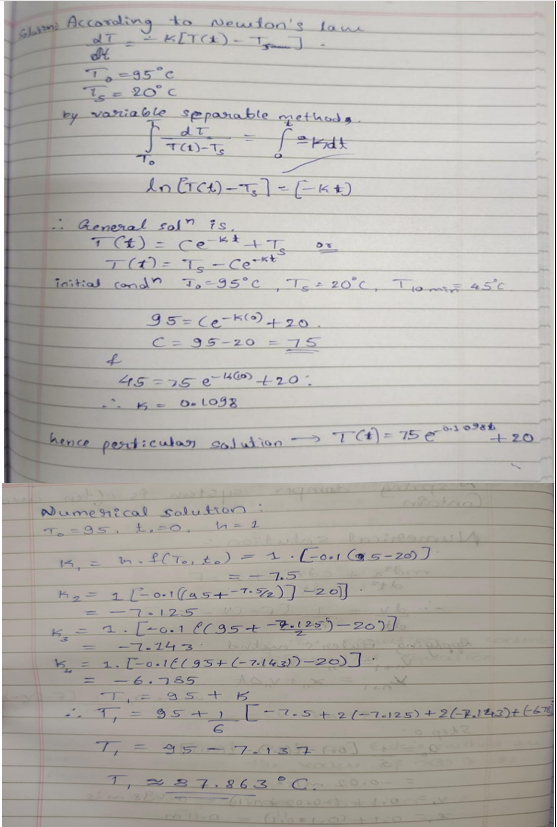 Solution: According to Newton's law
dT/dt = -K[T(t) - Tsurr].
T₀ = 95°C
Ts = 20°C
by variable separable methods.
∫_T₀^T dT/(T(t)-Ts) = ∫₀^t -Kdt
ln[T(t)-Ts] = [-Kt]
∴ General solⁿ is.
T(t) = Ce^-Kt + Ts or
T(t) = Ts - Ce^-Kt
initial condⁿ T₀=95°C, Ts=20°C, T10 min = 45°C
95 = Ce^-K(0) + 20.
C = 95-20 = 75
&
45 = 75 e^-K(10) + 20.
∴ K = 0.1098
hence perticular solution → T(t) = 75e^-0.1098t + 20
Numerical solution :
T₀ = 95, t₀=0, h = 1
K₁ = h.f(T₀, t₀) = 1.[-0.1(95-20)]
= -7.5
K₂ = 1[-0.1((95+-7.5/2)]-20)].
= -7.125
K₃ = 1.[-0.1{(95+-7.125/2)-20)}]
= -7.143
K₄ = 1.[-0.1{(95+(-7.143))-20)].
= -6.785
T₁ = 95 + K
∴ T₁ = 95 + 1/6 [-7.5+2(-7.125)+2(-7.143)+(-6.78
T₁ = 95 - 7.137
T₁ ≈ 87.863°C.